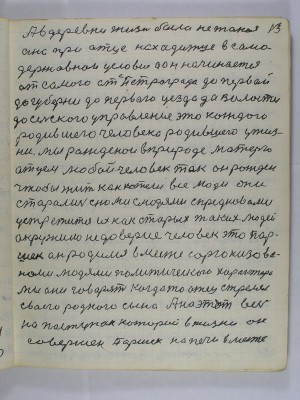 13
А в деревни жизн была не такая
ана при атце находитце в само
державном условии он начинается
от самого ст Петрограда до первой
до губерни до первого уезда да волости
до селского управление это каждого
родившего человека родившего в жиз
ни. мы рожденои в природе матерю
атцем любой человек так он рожден
чтобы жит как хотели все люди они
старалис с ними с людями с предковами
устретитс их как старых таких людей
окружило недоверие человек это пар
шек он родился вместе с организова
ными людями политического характера
мы они говорят когда то отец стрелял
своего родного сына А на этот век
на поступак которой в жизни он
совершен Паршек на печи вместе